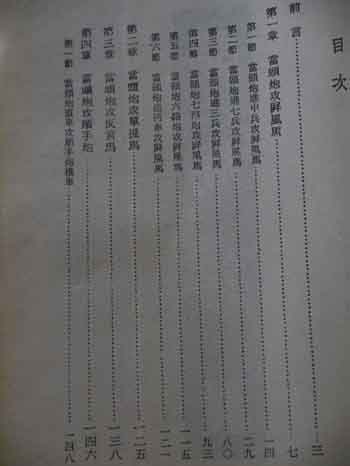 目次
前言 三
第一章 當頭炮攻屏風馬 七
第一節 當頭炮進中兵攻屏風馬 一四
第二節 當頭炮進七兵攻屏風馬 二九
第三節 當頭炮進三兵攻屏風馬 八〇
第四節 當頭炮七路炮攻屏風馬 九三
第五節 當頭炮六路炮攻屏風馬 一一五
第六節 當頭炮過河車攻屏風馬 一二一
第二章 當頭炮攻單提馬 一二五
第三章 當頭炮攻反宮馬 一三八
第四章 當頭炮攻順手炮 一四六
第一節 當頭炮直車攻順手炮橫車 一四八